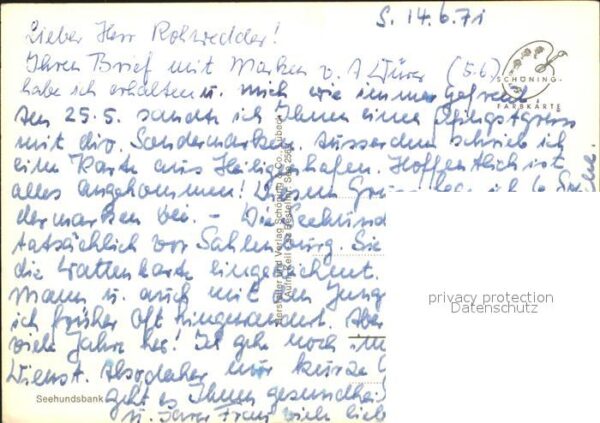 S. 14.6.71
Lieber Herr Rohwedder!
Ihren Brief mit Marken v. A Dürer (5.6.)
habe ich erhalten u. mich wie immer gefreut
Am 25.5. sandte ich Ihnen einen Pfingstgruss
mit div. Sondermarken. Ausserdem schrieb ich
eine Karte aus Heiligenhafen. Hoffentlich ist
alles angekommen! Diesem Gruss leg ich 6
dermarken bei. – Die Seehund
tatsächlich vor Sahlenburg. Sie
die Wattenkarte eingezeichnet.
Mann u. auch mit den Jung
ich früher oft hingewandert. Aber
viele Jahre her! Ich gehe noch im
Dienst. Also daher nur kurze
geht es Ihnen gesundhei
u. Ihrer Frau viele lieb
SCHÖNING
FARBKARTE
Hersteller und Verlag Schöning & Co., Lübeck
Seehundsbank
privacy protection
Datenschutz